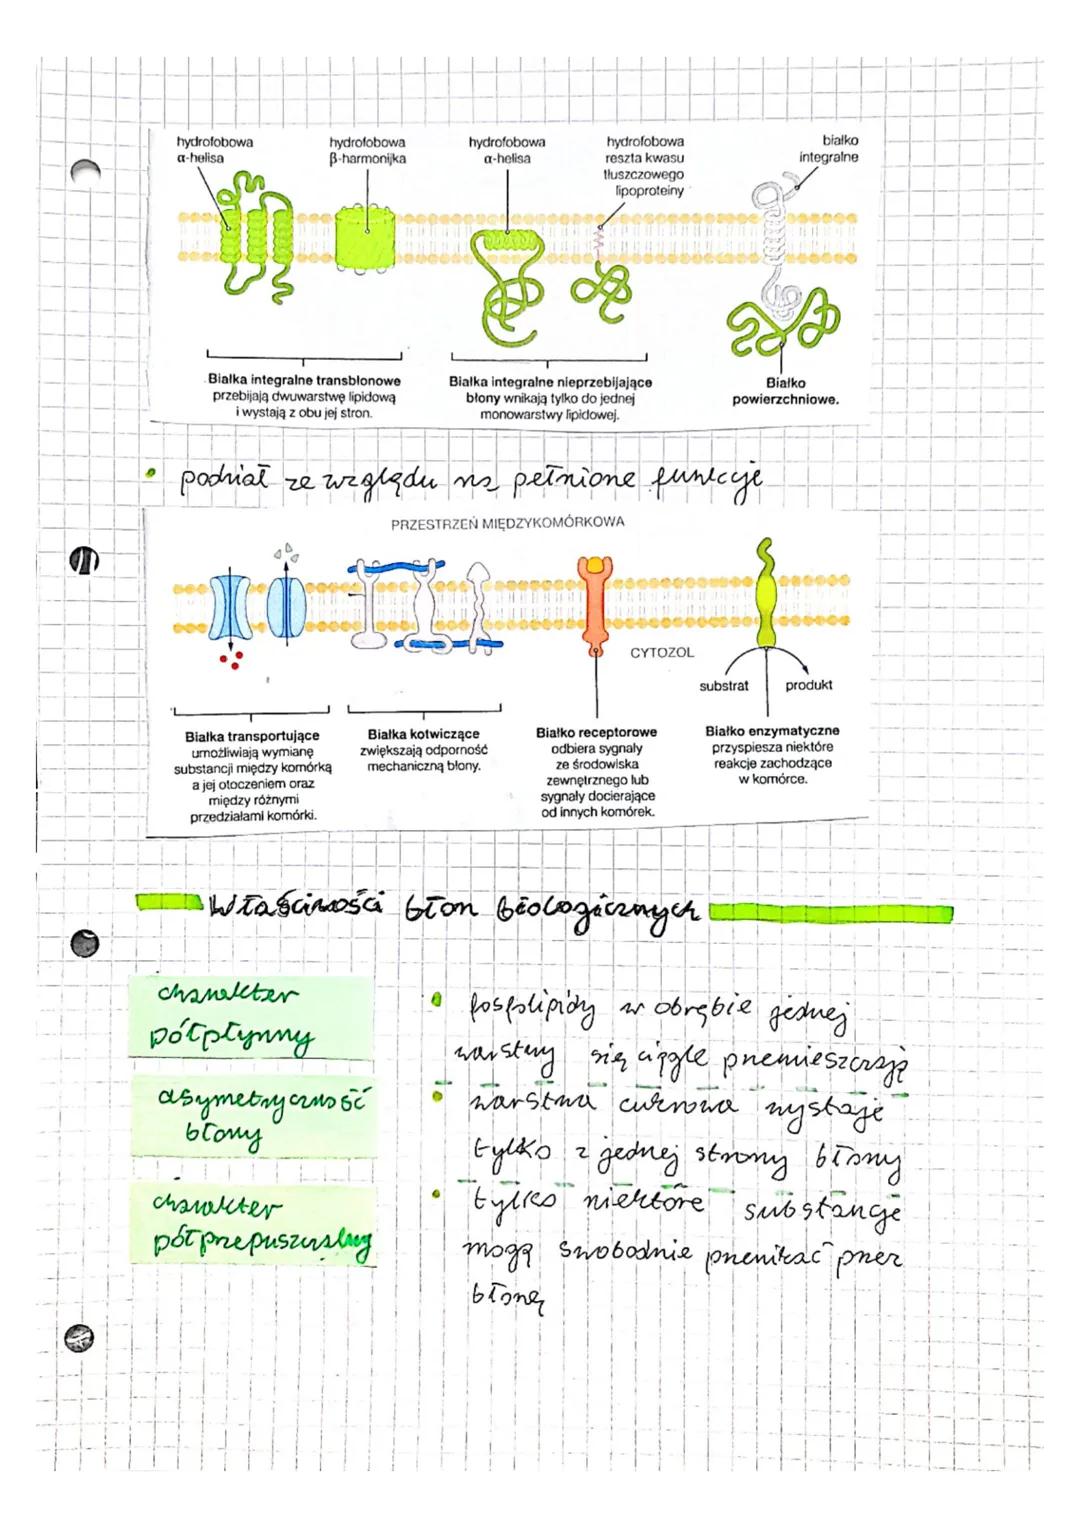 hydrofobowa
α-helisa
hydrofobowa
β-harmonijka
hydrofobowa
α-helisa
hydrofobowa
reszta kwasu
tłuszczowego
lipoproteiny
białko
integralne
Białka integralne transbłonowe
przebijają dwuwarstwę lipidową
i wystają z obu jej stron.
Białka integralne nieprzebijające
błony wnikają tylko do jednej
monowarstwy lipidowej.
Białko
powierzchniowe.
podział ze względu na pełnione funkcje
PRZESTRZEŃ MIĘDZYKOMÓRKOWA
CYTOZOL
substrat
produkt
Białka transportujące
umożliwiają wymianę
substancji między komórką
a jej otoczeniem oraz
między różnymi
przedziałami komórki.
Białka kotwiczące
zwiększają odporność
mechaniczną błony.
Białko receptorowe
odbiera sygnały
ze środowiska
zewnętrznego lub
sygnały docierające
od innych komórek.
Białko enzymatyczne
przyspiesza niektóre
reakcje zachodzące
w komórce.
Właściwości błon biologicznych
charakter
półpłynny
• fosfolipidy w obrębie jednej
warstwy się ciągle przemieszczają
asymetryczność
błony
• warstwa cukrowa wystaje
tylko z jednej strony błony
charakter
półprzepuszczalny
• tylko niektóre substancje
mogą swobodnie przenikać przez
błonę